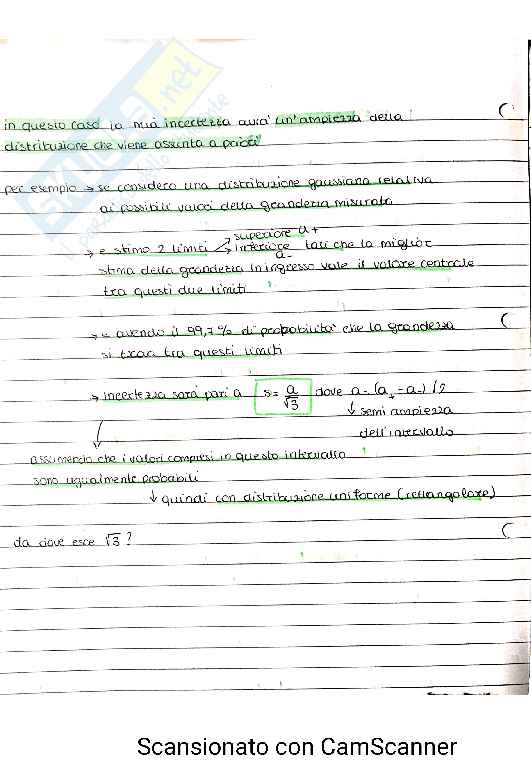 in questo caso la mia incertezza avra' un'ampiezza della
distribuzione che viene assunta a priori
per esempio → se considero una distribuzione gaussiana relativa
ai possibili valori della grandezza misurata
→ e stimo 2 limiti superiore a+
inferiore a- tali che la miglior
stima della grandezza in ingresso vale il valore centrale
tra questi due limiti
→ e avendo il 99,7% di probabilita' che la grandezza
si trovi tra questi limiti
→ incertezza sarà pari a s = a/√3 dove a = (a+ - a-)/2
↓ semi ampiezza
dell'intervallo
assumendo che i valori compresi in questo intervallo
sono ugualmente probabili
↓ quindi con distribuzione uniforme (rettangolare)
da dove esce √3?
Scansionato con CamScanner